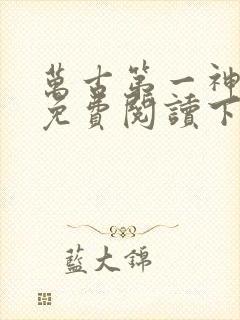 萬古第一神
免費閱讀下
藍大錦